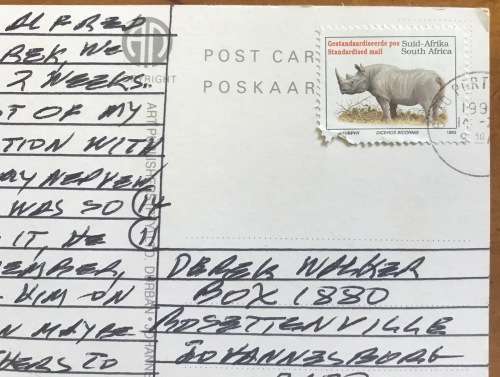 ALFRED
REK, WE
2 WEEKS.
ST OF MY
TION WITH
MY NERVEN
WAS SO 14
IT, HE 11
EMBER,
HIM ON
N MAYBE
THERS TO
RIGHT
ART PUBLISHERS (PTY) LTD DURBAN
POST CAR
POSKAAR
Gestandaardiseerde pos
Standardised mail
Suid-Afrika
South Africa
DICEROS BICORNIS
1993
PORT
199
DEREK WALKER
BOX 1880
ROSETTENVILLE
JOHANNESBURG